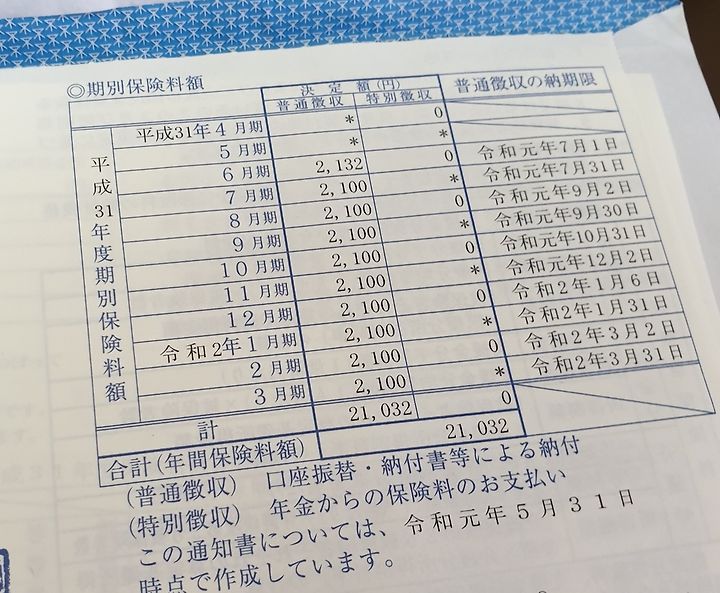 ◎期別保険料額
決定額(円) 普通徴収の納期限
普通徴収 特別徴収
平成31年度期別保険料額
平成31年4月期 * 0
5月期 * *
6月期 2,132 0 令和元年7月1日
7月期 2,100 * 令和元年7月31日
8月期 2,100 0 令和元年9月2日
9月期 2,100 * 令和元年9月30日
10月期 2,100 0 令和元年10月31日
11月期 2,100 * 令和元年12月2日
12月期 2,100 0 令和2年1月6日
令和2年1月期 2,100 * 令和2年1月31日
2月期 2,100 0 令和2年3月2日
3月期 2,100 * 令和2年3月31日
計 21,032 0
合計(年間保険料額) 21,032
(普通徴収) 口座振替・納付書等による納付
(特別徴収) 年金からの保険料のお支払い
この通知書については、令和元年5月31日
時点で作成しています。